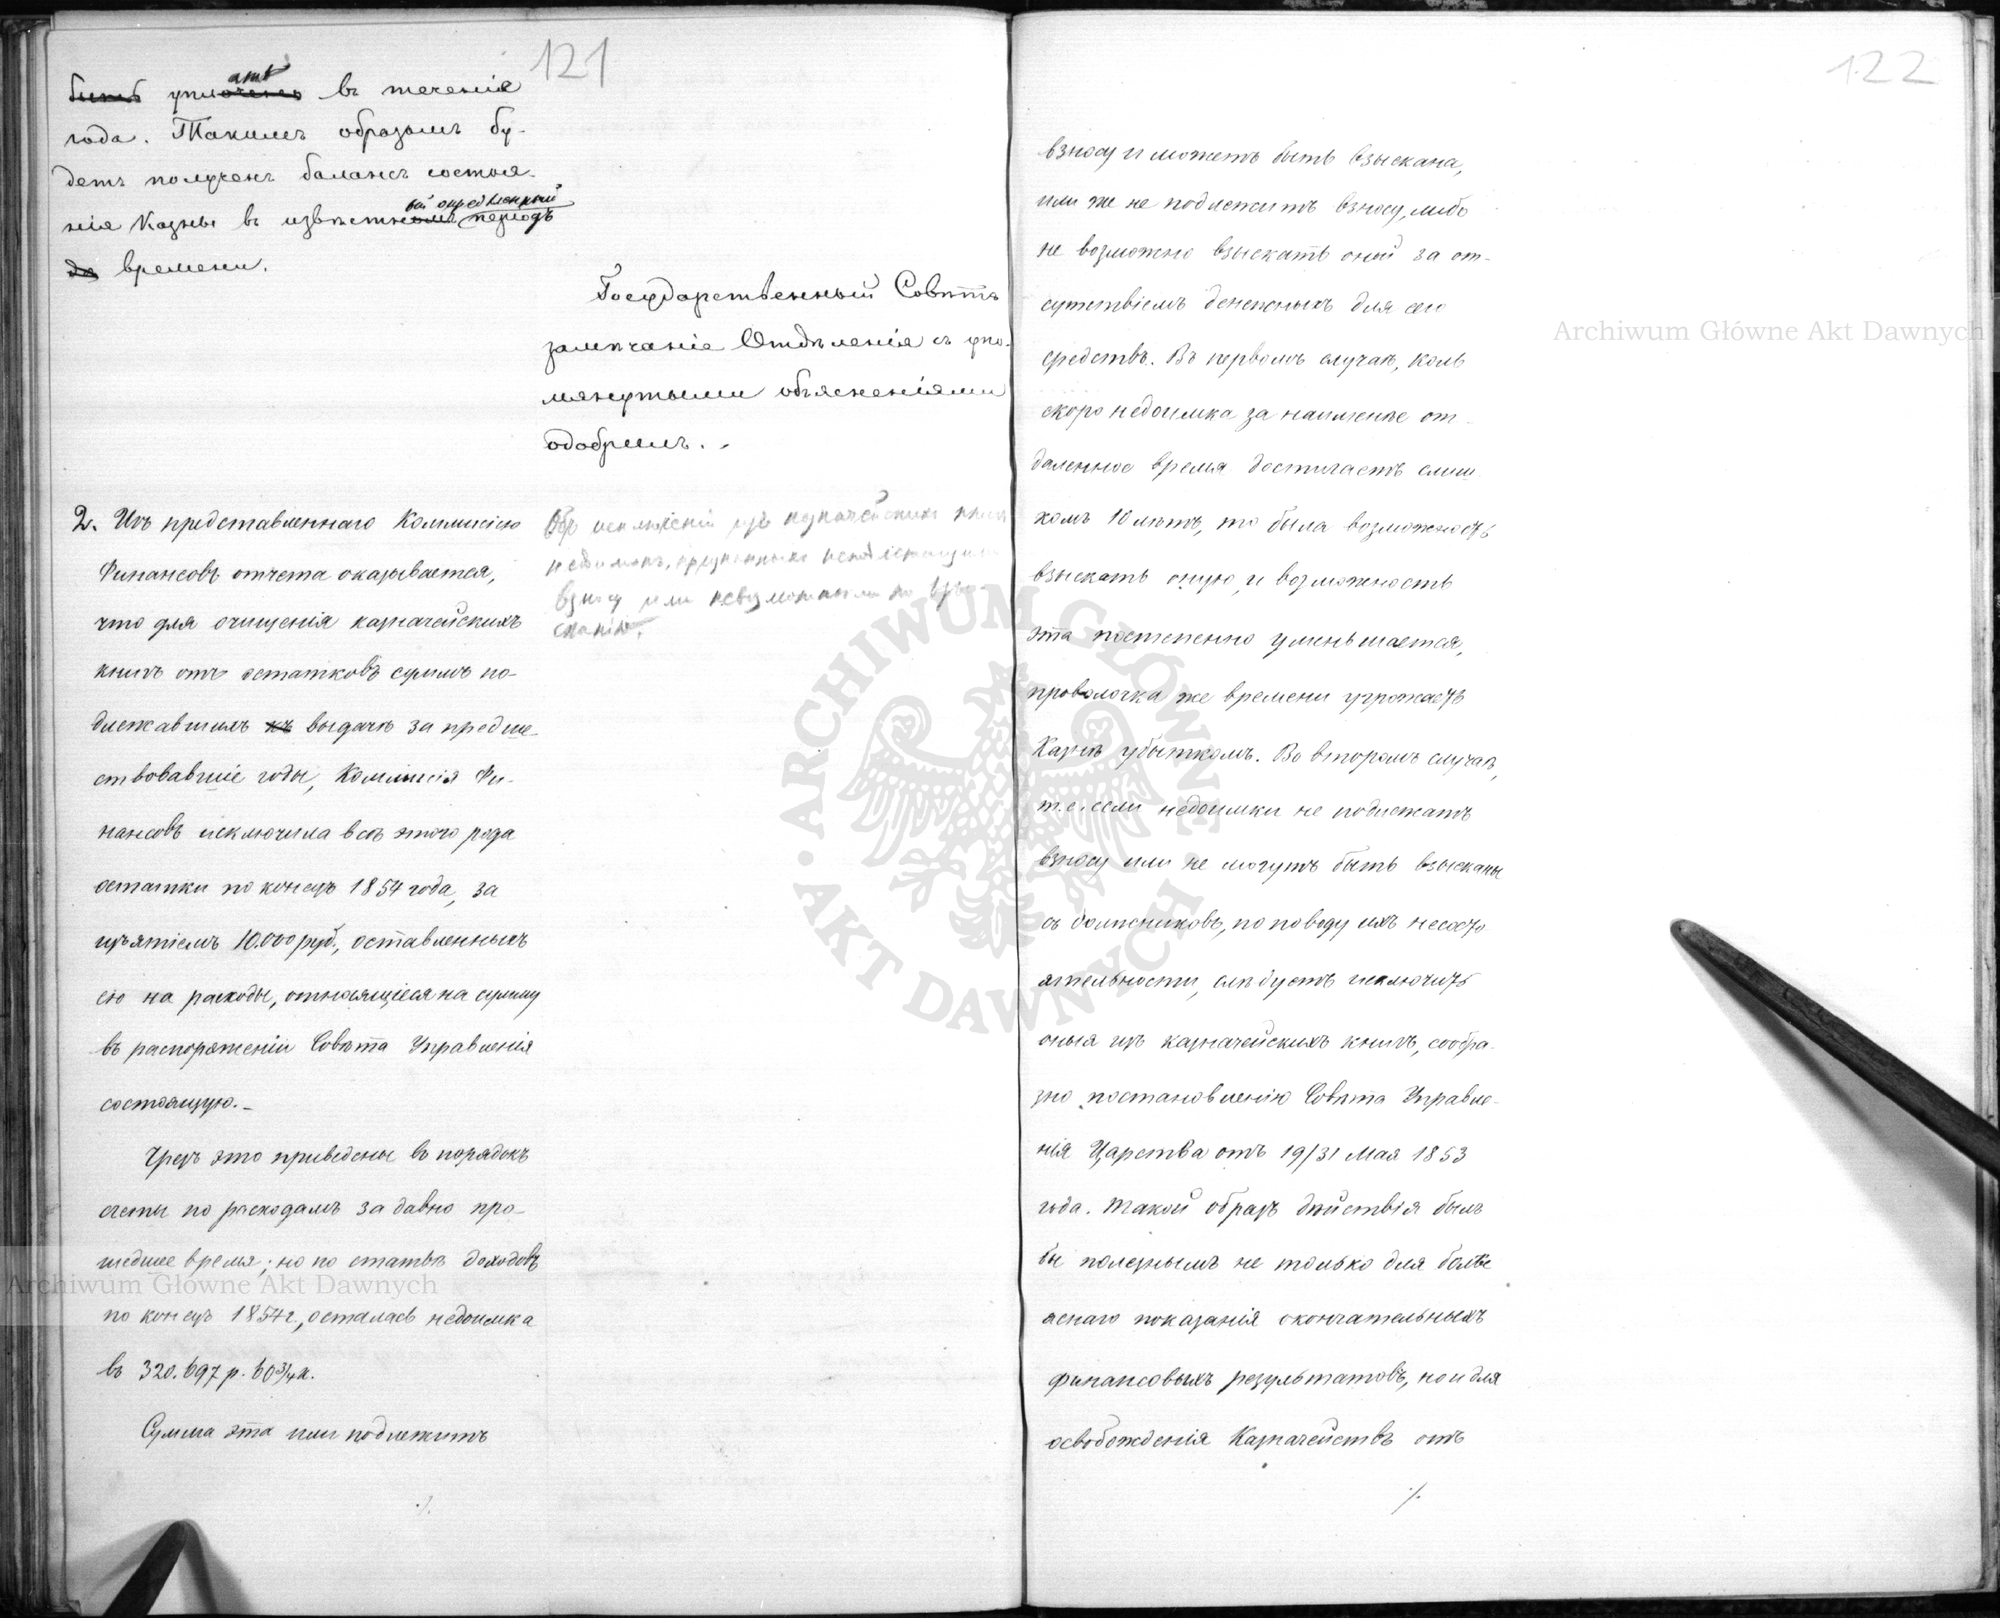 121
~~быть~~ упл~~очено~~ атъ въ теченіе
года. Такимъ образомъ бу-
детъ полученъ балансъ состоя-
нія Казны въ извѣстн~~омъ~~ый опредѣленный періодъ
~~да~~ времени.
Государственный Совѣтъ
замѣчаніе Отдѣленія съ упо-
мянутыми объясненіями
одобрилъ.
2. Изъ представленнаго Коммисіею
Финансовъ отчета оказывается,
что для очищенія казначейскихъ
книгъ отъ остатковъ суммъ по-
длежавшихъ ~~къ~~ выдачѣ за предше-
ствовавшіе годы, Коммисія Фи-
нансовъ исключила всѣ этого рода
остатки по конецъ 1854 года, за
изъятіемъ 10.000 руб., оставленныхъ
ею на расходы, относящіеся на сумму
въ распоряженіи Совѣта Управленія
состоящую.
Чрезъ это приведены въ порядокъ
счеты по расходамъ за давно про-
шедшее время; но по статьѣ доходовъ
по конецъ 1854 г., осталась недоимка
въ 320.697 р. 60 3/4 к.
Сумма эта или подлежитъ
./.
Объ исключеніи изъ казначейскихъ книгъ
недоимокъ, признанныхъ неподлежащими
взносу или невозможными ко взы-
сканію.
122
взносу и можетъ быть взыскана,
или же не подлежитъ взносу, либо
не возможно взыскать оной за от-
сутствіемъ денежныхъ для сего
средствъ. Въ первомъ случаѣ, коль
скоро недоимка за наименѣе от-
даленное время достигаетъ слиш
комъ 10 лѣтъ, то была возможность
взыскать оную, и возможность
эта постепенно уменьшается,
проволочка же времени угрожаетъ
Казнѣ убыткомъ. Во второмъ случаѣ,
т.е. если недоимки не подлежатъ
взносу или не могутъ быть взысканы
съ должниковъ, по поводу ихъ несосто
ятельности, слѣдуетъ исключить
оныя изъ казначейскихъ книгъ, сообра-
зно постановленію Совѣта Управле-
нія Царства отъ 19/31 Мая 1853
года. Такой образъ дѣйствія былъ
бы полезнымъ не только для болѣе
яснаго показанія окончательныхъ
финансовыхъ результатовъ, но и для
освобожденія Казначействъ отъ
./.
Archiwum Główne Akt Dawnych
Archiwum Główne Akt Dawnych
ARCHIWUM GŁÓWNE • AKT DAWNYCH •